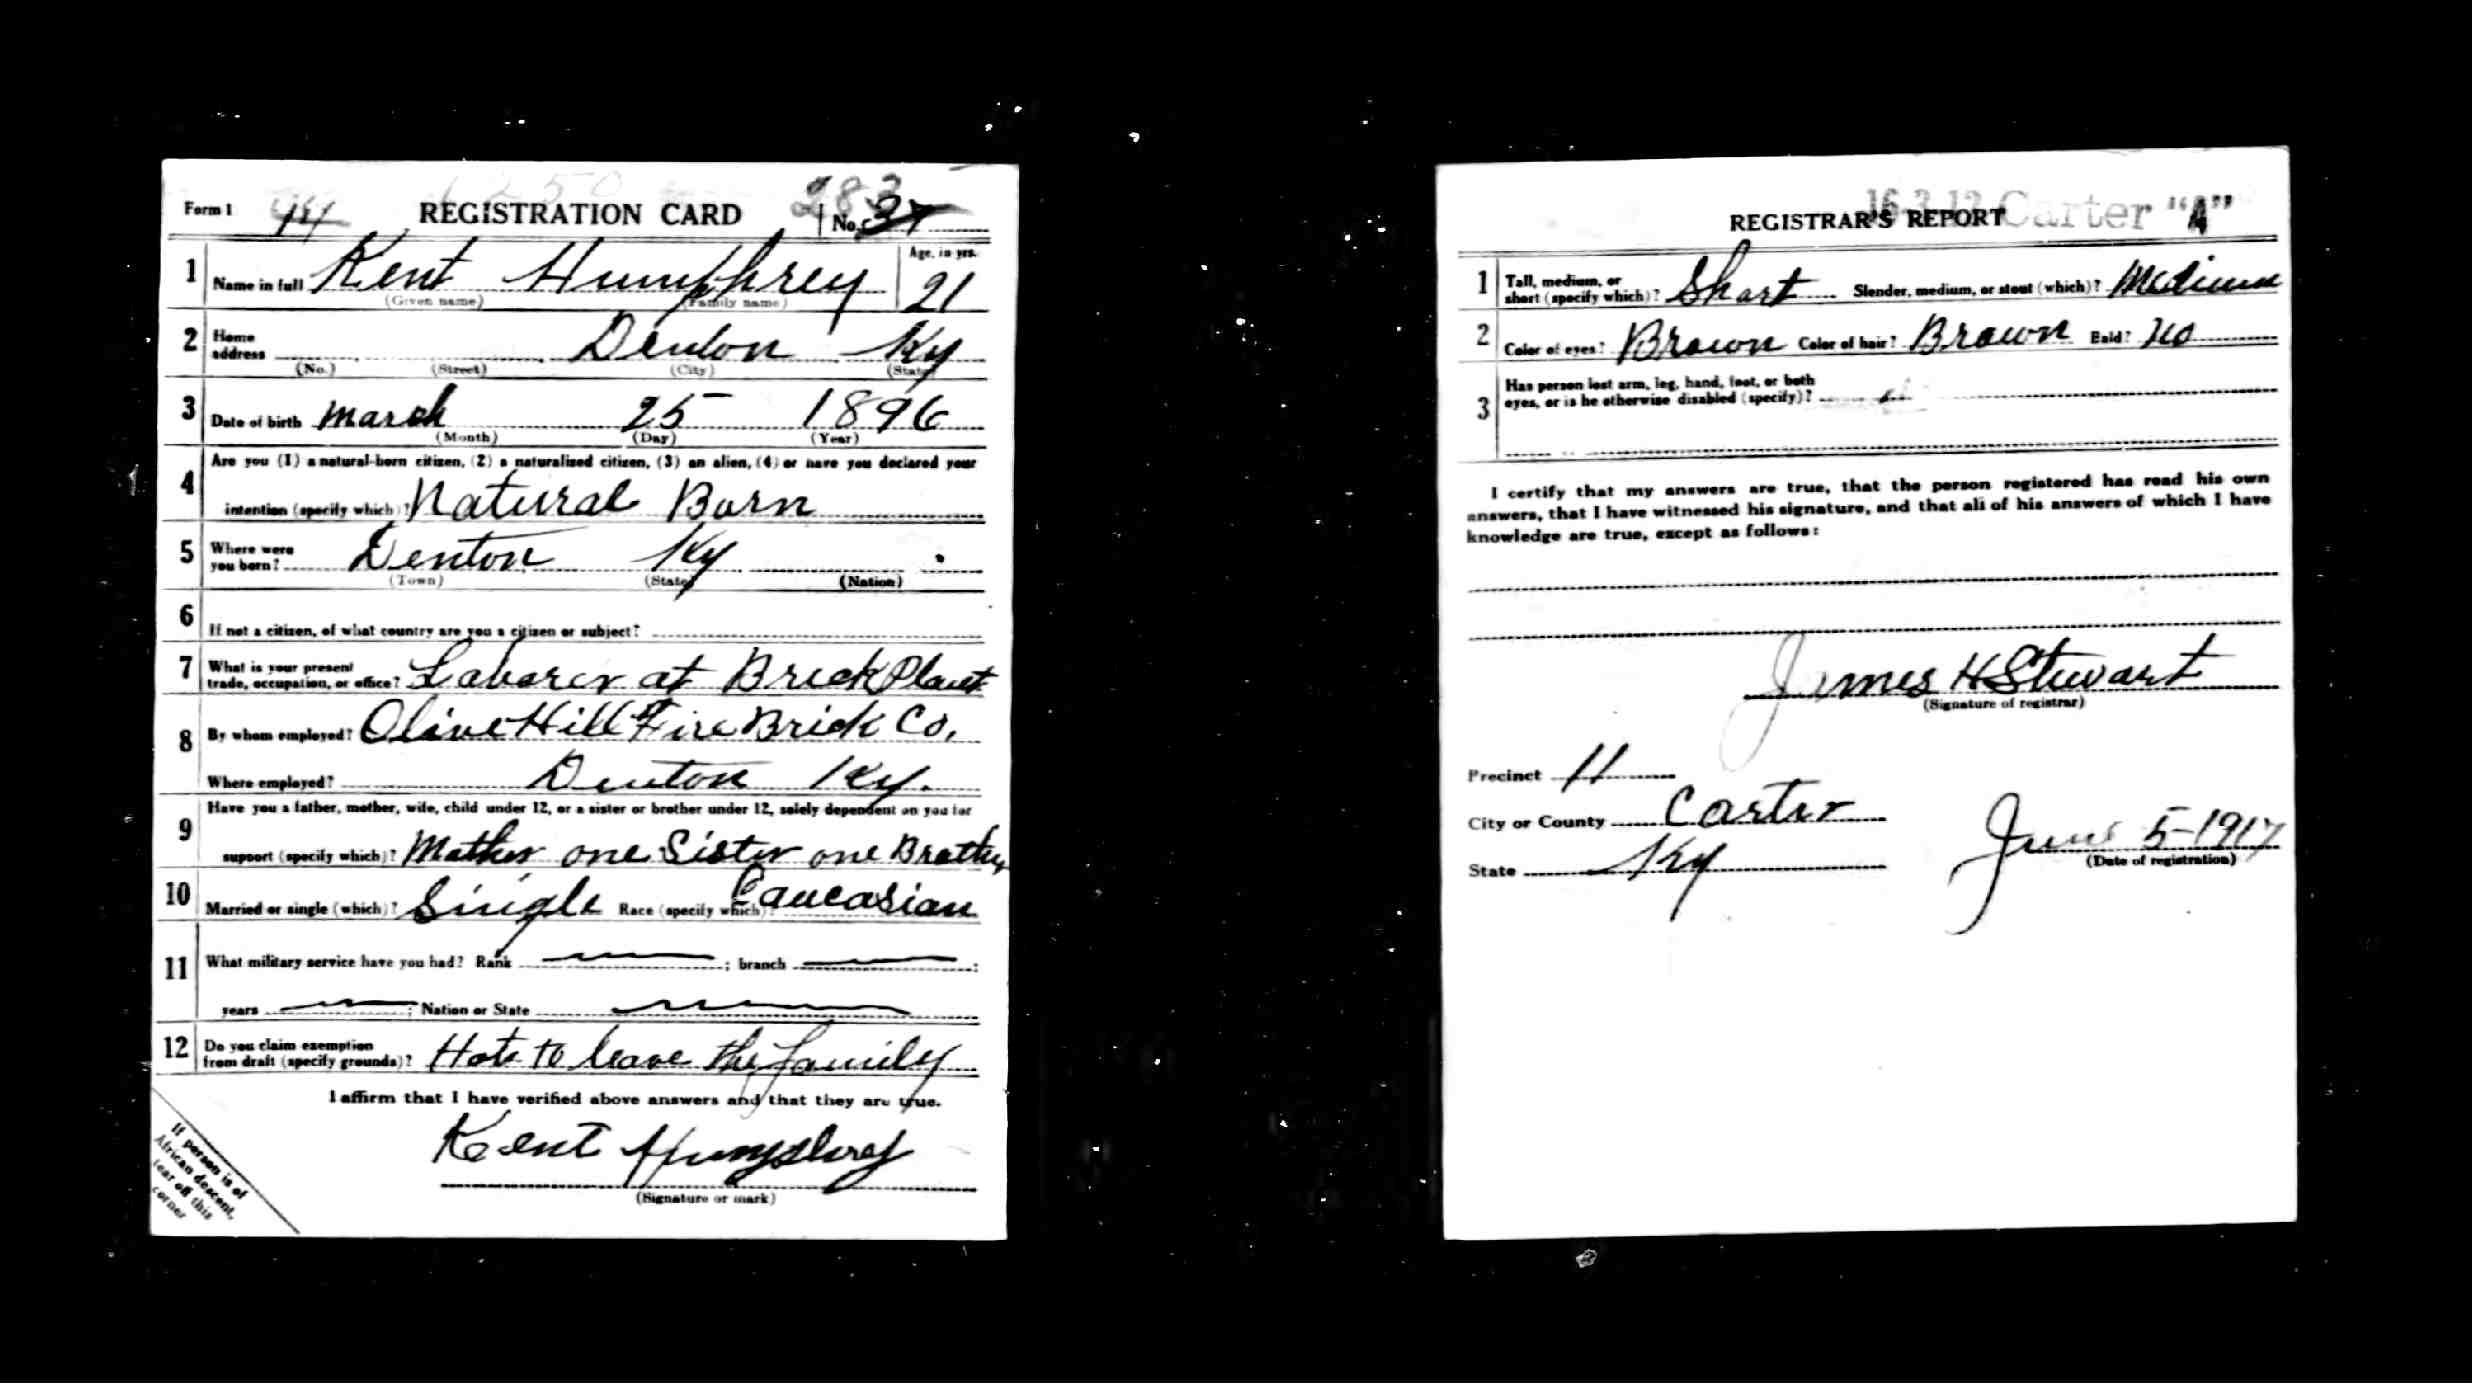 Form 1 REGISTRATION CARD No. 37
283
1 Name in full Kent Humphrey Age, in yrs. 21
(Given name) (Family name)
2 Home address Denton Ky
(No.) (Street) (City) (State)
3 Date of birth March 25 1896
(Month) (Day) (Year)
4 Are you (1) a natural-born citizen, (2) a naturalized citizen, (3) an alien, (4) or have you declared your
intention (specify which)? Natural Born
5 Where were you born? Denton Ky
(Town) (State) (Nation)
6 If not a citizen, of what country are you a citizen or subject?
7 What is your present trade, occupation, or office? Laborer at Brick Plant
8 By whom employed? Olive Hill Fire Brick Co.
Where employed? Denton Ky.
9 Have you a father, mother, wife, child under 12, or a sister or brother under 12, solely dependent on you for
support (specify which)? Mother one Sister one Brother
10 Married or single (which)? Single Race (specify which)? Caucasian
11 What military service have you had? Rank ; branch ;
years ; Nation or State
12 Do you claim exemption from draft (specify grounds)? Hate to leave the family
I affirm that I have verified above answers and that they are true.
Kent Humphrey
(Signature or mark)
If person is of
African descent,
tear off this
corner
16-3-12 Carter "A"
REGISTRAR'S REPORT
1 Tall, medium, or short (specify which)? Short Slender, medium, or stout (which)? Medium
2 Color of eyes? Brown Color of hair? Brown Bald? No
3 Has person lost arm, leg, hand, foot, or both
eyes, or is he otherwise disabled (specify)?
I certify that my answers are true, that the person registered has read his own
answers, that I have witnessed his signature, and that all of his answers of which I have
knowledge are true, except as follows:
James H Stewart
(Signature of registrar)
Precinct 11
City or County Carter
State Ky
June 5-1917
(Date of registration)